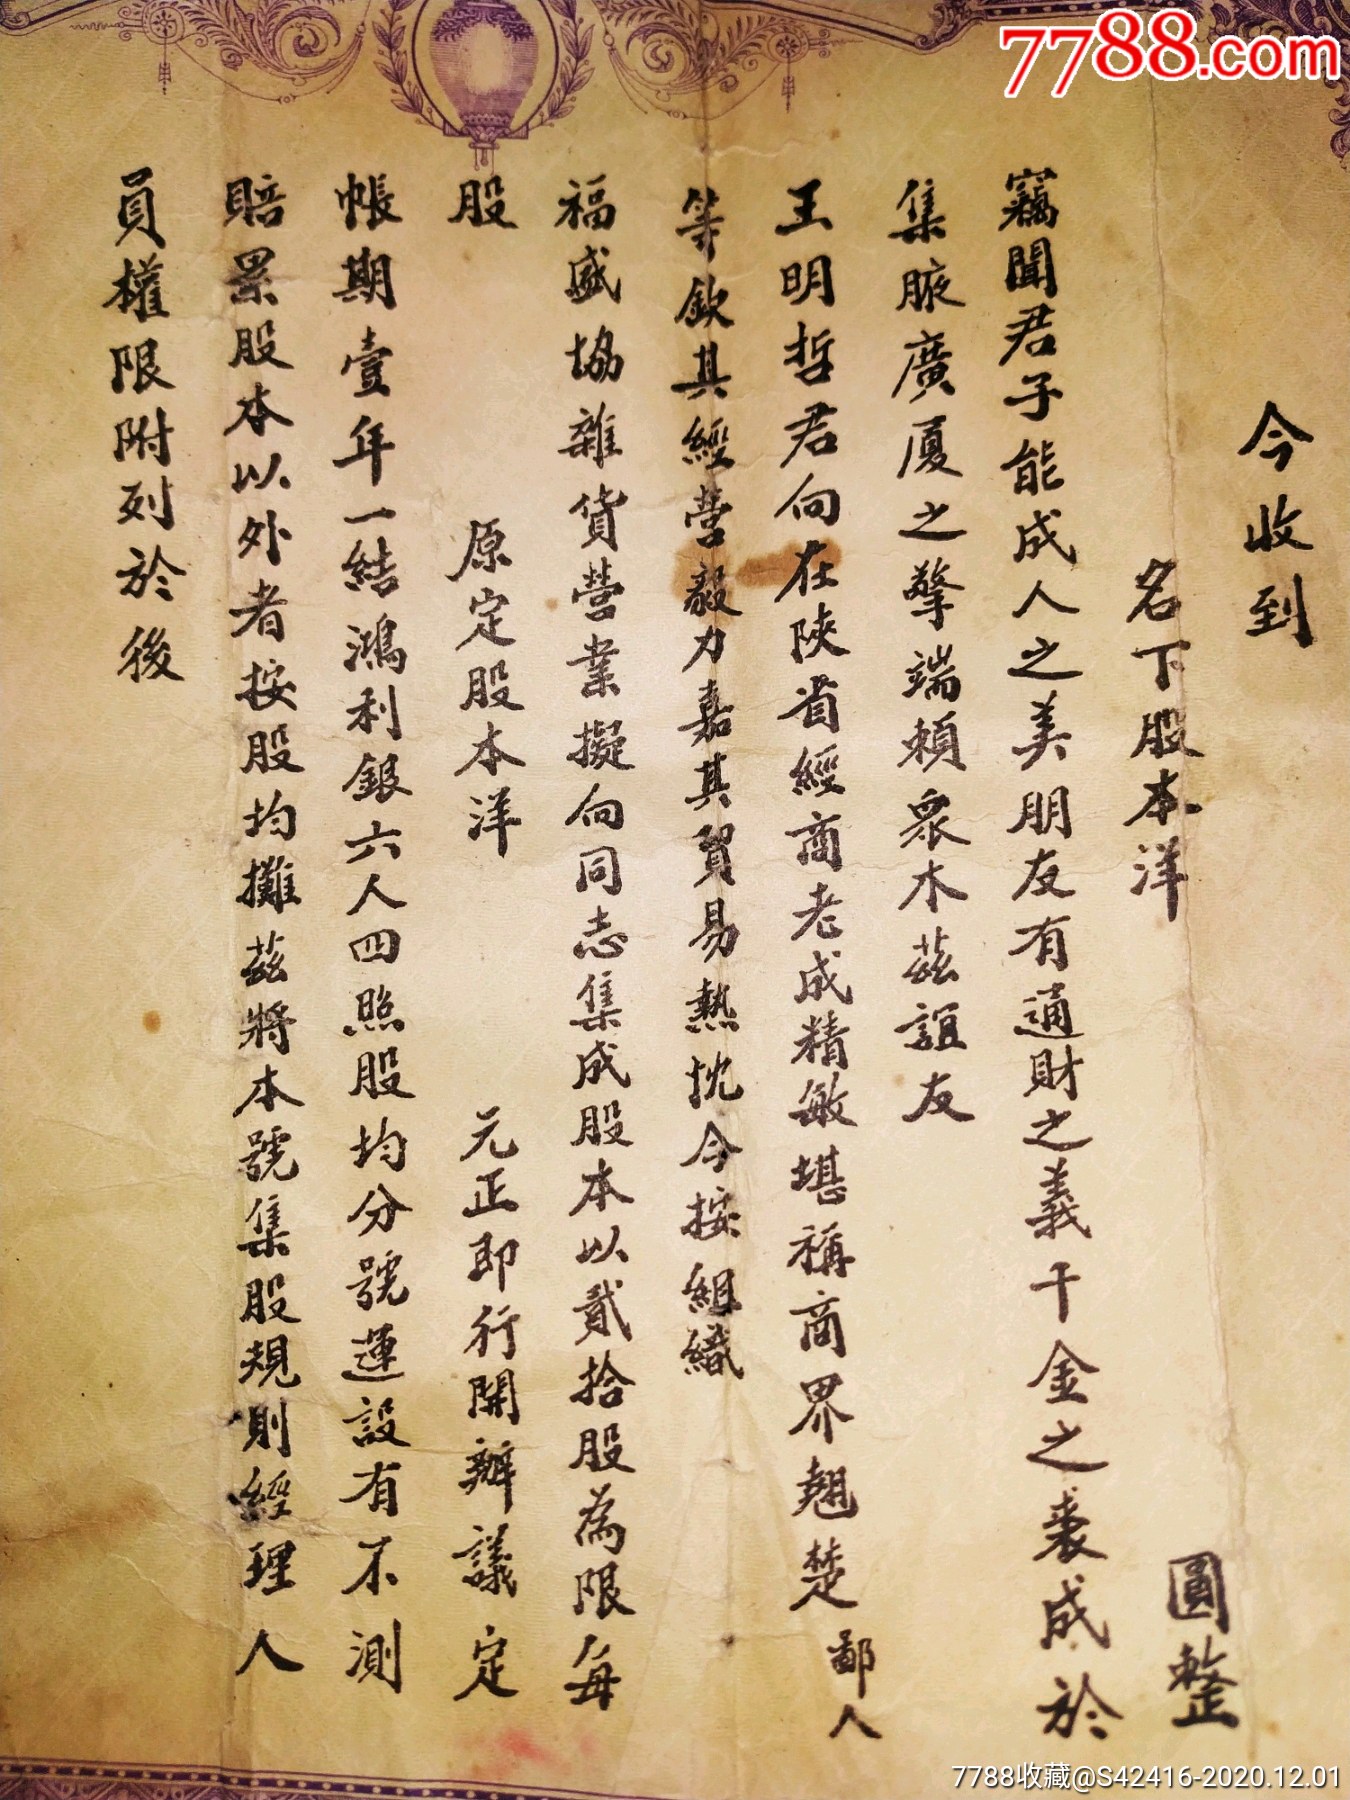 7788.com
今收到
名下股本洋 圓整
竊聞君子能成人之美朋友有通財之義千金之裘成於
集腋廣厦之擎端賴衆木茲誼友
王明哲君向在陝省經商老成精敏堪稱商界翹楚鄙人
等欽其經營毅力嘉其貿易熱忱今按組織
福盛協雜貨營業擬向同志集成股本以貳拾股為限每
股 原定股本洋 元正即行開辦議定
帳期壹年一結鴻利銀六人四照股均分號運設有不測
賠累股本以外者按股均攤茲將本號集股規則經理人
員權限附列於後
7788收藏@S42416-2020.12.01